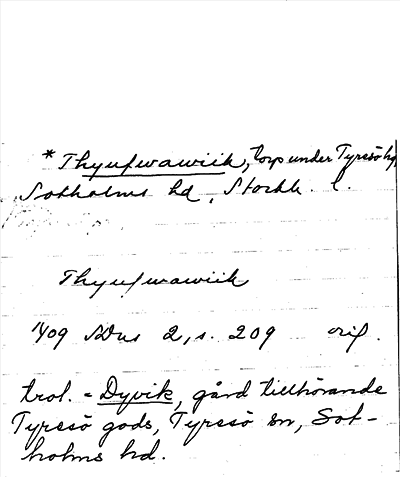 * Thyufwawiik, torp under Tyresö hg,
Sotholms hd, Stockh. l.
Thyufwawiik
1409 SDns 2, s. 209 orig.
trol. = Dyvik, gård tillhörande
Tyresö gods, Tyresö sn, Sot-
holms hd.